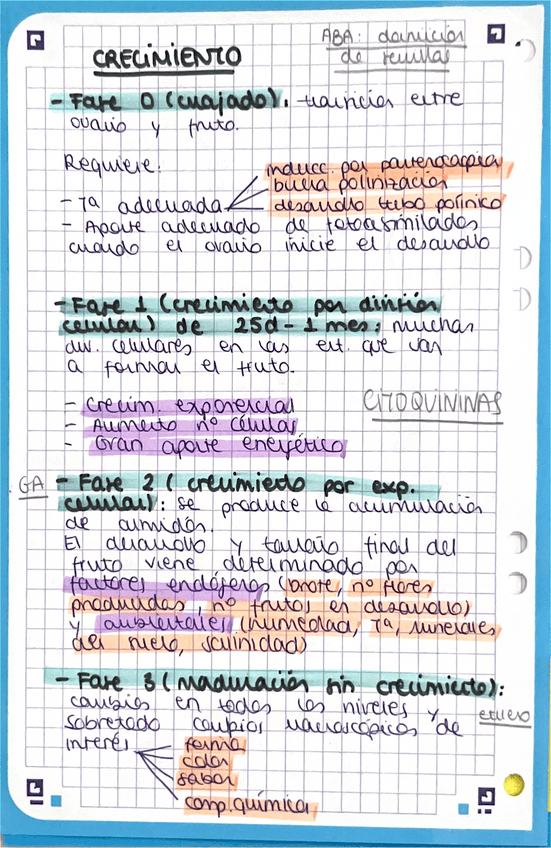 ABA: dominación
de semillas
CRECIMIENTO
- Fase 0 (cuajado). transición entre
ovario y fruto.
Requiere:
inducc. por partenocarpia
buena polinización
- Tª adecuada
desarrollo tubo polínico
- Aporte adecuado de fotoasimilados
cuando el ovario inicie el desarrollo
- Fase 1 (crecimiento por división
celular) de 25d - 1 mes: muchas
div. celulares en las est. que van
a formar el fruto.
- Crecim. exponencial
CITOQUININAS
- Aumento nº células
- Gran aporte energético
GA
- Fase 2 (crecimiento por exp.
celular): se produce la acumulación
de almidón.
El desarrollo y tamaño final del
fruto viene determinado por
factores endógenos (brote, nº flores
producidas, nº frutos en desarrollo)
y ambientales (humedad, Tª, minerales
del suelo, salinidad)
- Fase 3 (maduración sin crecimiento):
cambios en todos los niveles y
etileno
sobretodo cambios macroscópicos de
interés
forma
color
sabor
comp. química